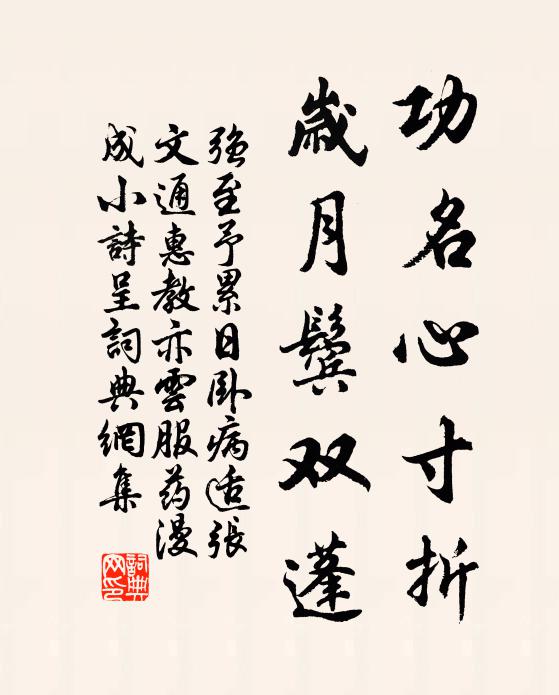 功名心寸折
歳月鬓双蓬
強至予累日卧病适張
文通惠教亦雲服药漫
成小詩呈詞典網集
詞典网印